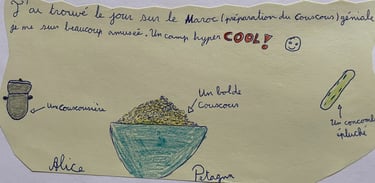 J'ai trouvé le jour sur le Maroc (préparation du couscous) géniale
je me suis beaucoup amusée. Un camp hyper COOL!
Un couscoussière
Un bol de
Couscous
Un concomb
épluché
Alice
Petagna